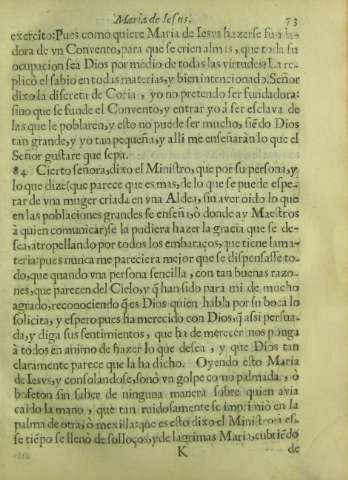 Maria de Iesus. 73
exercito: Pues como quiere Maria de Iesvs hazerse funda-
dora de vn Convento, para que se crien almas, que toda su
ocupacion sea Dios por medio de todas las virtudes? La re-
plicò el sabio en todas materias, y bien intencionado. Señor
dixo la discreta de Coria, yo no pretendo ser fundadora:
sino que se funde el Convento, y entrar yo à ser esclava de
las que le poblaren, y esto no puede ser mucho, siẽdo Dios
tan grande, y yo tan pequeña, y alli me enseñaràn lo que el
Señor gustare que sepa.
84. Cierto señora, dixo el Ministro, que por su persona, y
lo que dize (que parece que es mas, de lo que se puede espe-
rar de vna muger criada en vna Aldea, sin aver oido lo que
en las poblaciones grandes se enseña, ò donde ay Maestros
à quien comunicar) se la pudiera hazer la gracia que se de-
sea, atropellando por todos los embaraços, que tiene la ma-
teria: pues nunca me pareciera mejor que se dispensasse to-
do, que quando vna persona sencilla, con tan buenas razo-
nes, que parecen del Cielo, y q̃ han sido para mi de mucho
agrado, reconociendo q̃ es Dios quien habla por su boca lo
solicita, y espero pues ha merecido con Dios, q̃ assi persua-
da, y diga sus sentimientos, que ha de merecer nos ponga
à todos en animo de hazer lo que desea, y que Dios tan
claramente parece que la ha dicho. Oyendo esto Maria
de Iesvs, y consolandose, sonò vn golpe como palmada, ò
bofeton sin saber de ninguna manera sobre quien avia
caido la mano, que tan ruidosamente se imprimiò en la
palma de otra, ò mexilla: que es esto dixo el Ministro: a es-
se tiẽpo se llenò de solloços, y de lagrimas Maria, cubriẽdo
K de